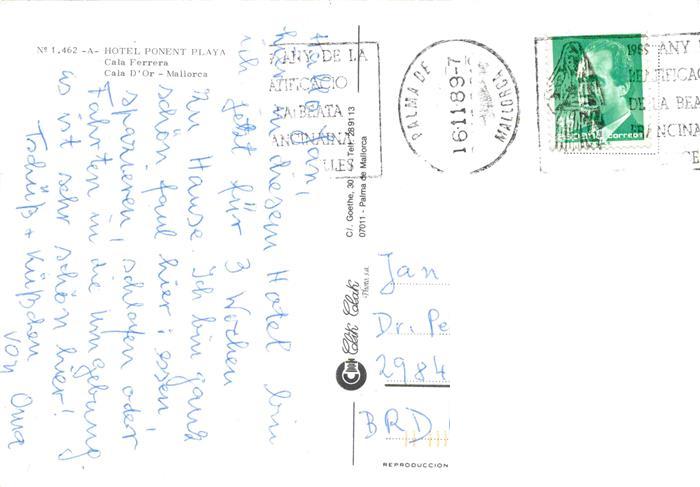 Nº 1.462 -A- HOTEL PONENT PLAYA
Cala Ferrera
Cala D'Or - Mallorca
Hallo Jan!
hier in diesem Hotel bin
ich jetzt für 3 Wochen
zu Hause. Ich bin ganz
schön faul hier: essen
spazieren! schlafen oder
Fahrten in die Umgebung
es ist sehr schön hier!
Tschüß + Küßchen
von Oma
ANY DE LA
ATIFICACIO
BEATA
ANCINAINA
LLES
PALMA DE MALLORCA
16·11·89-7
1989 ANY
BEATIFICAC
DE LA BEA
FRANCINA
correos
C/. Goethe, 30 Telf. 289113
07011 - Palma de Mallorca
Clik Clak
Photo s.a.
Jan
Dr. Pe
2984
BRD
REPRODUCCION